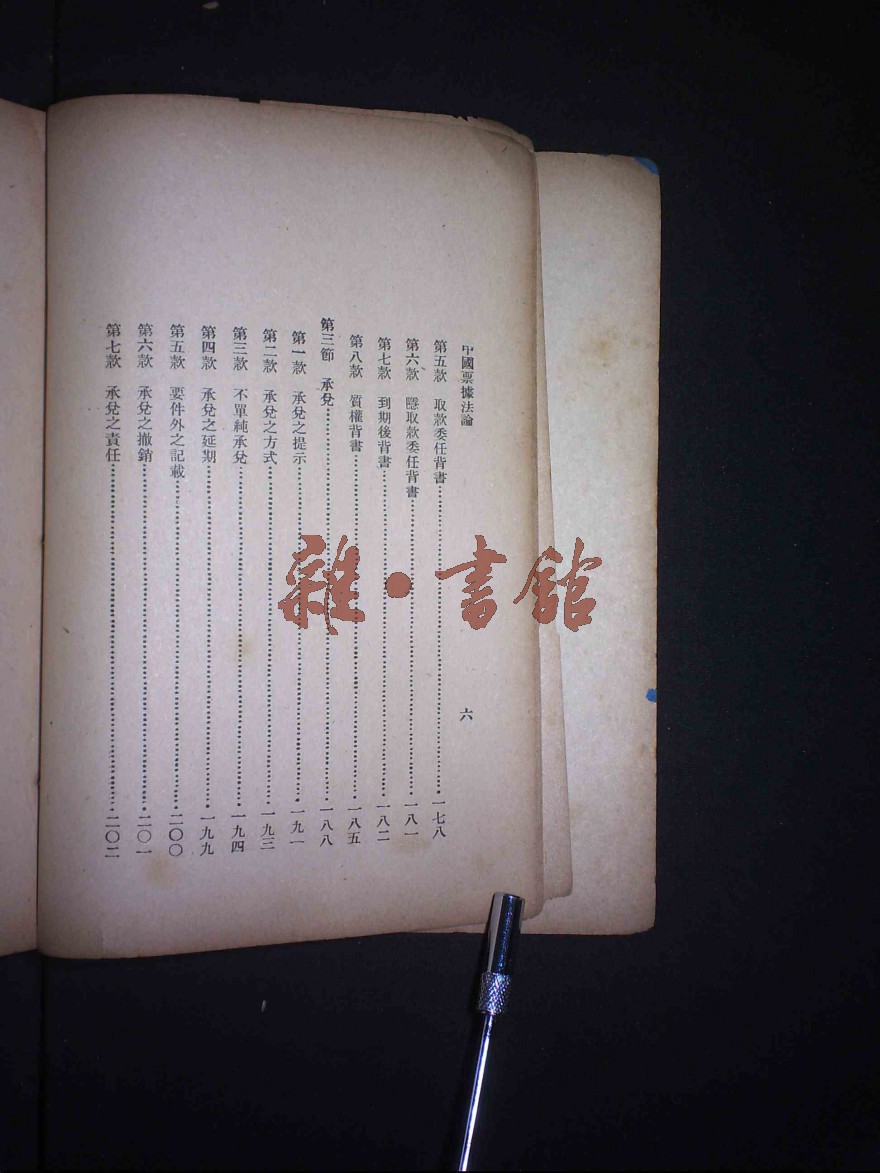 中國票據法論
六
第五款 取款委任背書……一七八
第六款 隱取款委任背書……一八一
第七款 到期後背書……一八二
第八款 質權背書……一八五
第三節 承兌……一八八
第一款 承兌之提示……一九一
第二款 承兌之方式……一九三
第三款 不單純承兌……一九四
第四款 承兌之延期……一九九
第五款 要件外之記載……二〇〇
第六款 承兌之撤銷……二〇一
第七款 承兌之責任……二〇二
雜·書館